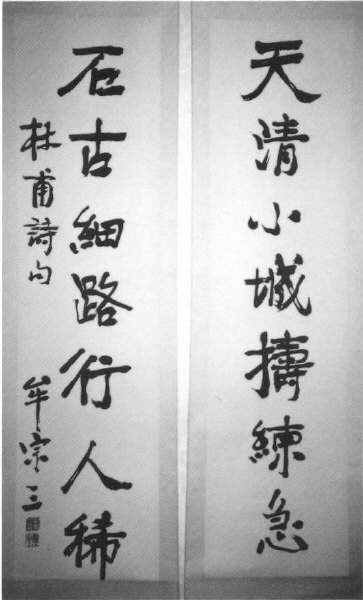 天清小城擣練急
石古細路行人稀
杜甫詩句 牟宗三